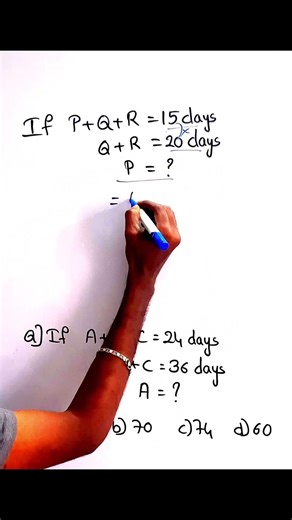 If P+Q+R = 15 days
Q+R = 20 days
P = ?
=
Q] If A+ C = 24 days
+C = 36 days
A = ?
b) 70 c) 74 d) 60